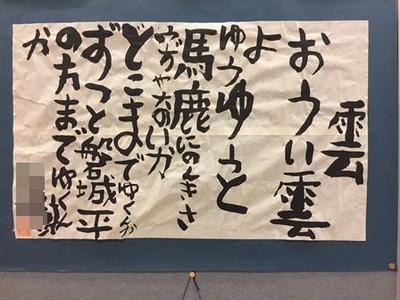 雲
おうい雲
よ
ゆうゆうと
馬鹿にのんきさ
うぢやないか
どこまでゆくんだ
ずつと磐城平
の方までゆくん
か